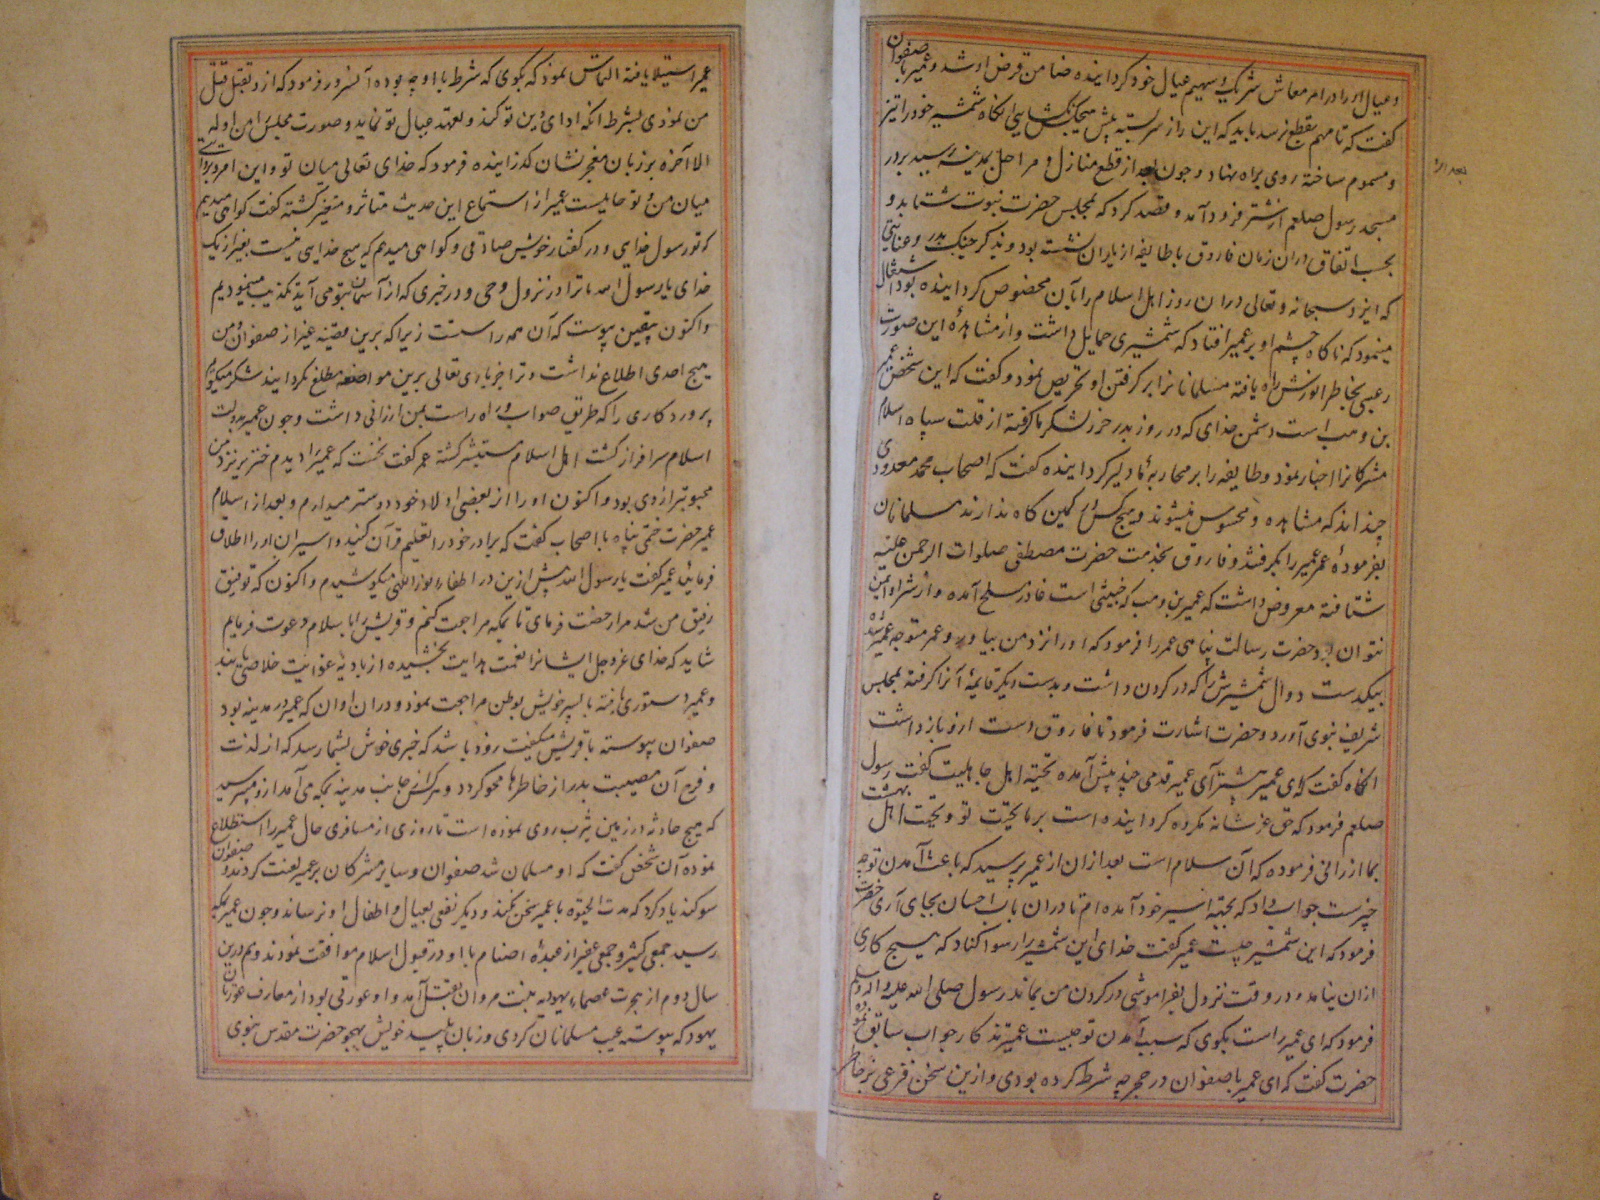 و عیال او را در امر معاش شریک و سهیم عیال خود گردانیده ضامن قرض او شد و عمیر با صفوان
گفت که تا مهم بقطع نرسد باید که این راز سربسته پیش هیچکس نگشایی انگاه شمشیر خود را تیز
و مسموم ساخته روی براه نهاد و چون بعد از قطع منازل و مراحل بمدینه رسید بر در
مسجد رسول صلعم از شتر فرود آمد و قصد کرد که بمجلس حضرت نبوت شتابد و
بحسب اتفاق دران زمان فاروق با طایفه از یاران نشسته بود و بذکر جنگ بدر و عنایتی
که ایزد سبحانه و تعالی دران روز اهل اسلام را بآن مخصوص گردانیده بود اشتغال
مینمود که ناگاه چشم او بر عمیر افتاد که شمشیری حمایل داشت و از مشاهدهٔ این صورت
رعبی بخاطر انورش راه یافته مسلمانانرا بر گرفتن او تحریص نمود و گفت که این شخص عمیر
بن وهب است دشمن خدای که در روز بدر حزر لشکر ما گرفته از قلت سپاه اسلام
مشرکانرا اخبار نمود و طایفه را بر محاربهٔ ما دلیر گردانیده گفت که اصحاب محمد معدودی
چند اند که مشاهده و محسوس میشوند و هیچ کس در کمین گاه ندارند مسلمانان
بفرمودهٔ عمر عمیر را بگرفتند و فاروق بخدمت حضرت مصطفی صلوات الرحمن علیه
شتافته معروض داشت که عمیر بن وهب که خبیثی است غادر مسلح آمده و از شر او ایمن
نتوان بود حضرت رسالت پناهی عمر را فرمود که او را نزد من بیاور و عمر متوجه عمیر شده
بیکدست دوال شمشیرش را که در گردن داشت و بدست دیگر قایمهٔ آنرا گرفته بمجلس
شریف نبوی آورد و حضرت اشارت فرمود تا فاروق دست ازو باز داشت
انگاه گفت که ای عمیر پیشتر آی عمیر قدمی چند پیش آمده تحیتهٔ اهل جاهلیت گفت رسول
صلعم فرمود که حق عز شانه مکرم گردانیده است بر ما تحیت تو و تحیت اهل بهشت
بما ارزانی فرموده که آن سلام است بعد ازان از عمیر پرسید که باعث آمدن تو چه
چیزست جواب داد که بجهة اسیر خود آمده ام تا دران باب احسان بجای آری حضرت
فرمود که این شمشیر چیست عمیر گفت خدای این شمشیر را رسوا کناد که هیچ کاری
ازان نیامد و در وقت نزول بفراموشی در گردن من بماند رسول صلی الله علیه و آله و سلم
فرمود که ای عمیر راست بگوی که سبب آمدن تو چیست عمیر تذکار جواب سابق نموده
حضرت گفت که ای عمیر با صفوان در حجر چه شرط کرده بودی و ازین سخن فزعی بر خاطر
بعد از
عمیر استیلا یافته التماس نمود که بگوی که شرط با او چه بوده آنسرور فرمود که ازو تقبل قتل
من نمودی بشرط انکه ادای دین تو کند و تعهد عیال تو نماید و صورت مجلس را من اوله
الا آخره بر زبان معجز نشان گذرانیده فرمود که خدای تعالی میان تو و این امر
میان من و تو حایلست عمیر از استماع این حدیث متاثر و متغیر گشته گفت گواهی میدهم
که تو رسول خدایی و در گفتار خویش صادقی و گواهی میدهم که هیچ خدایی نیست بغیر از یک
خدای یا رسول الله ما ترا در نزول وحی و در خبری که از آسمان بتو می آید تکذیب مینمودیم
و اکنون بیقین پیوست که آن همه راستست زیرا که برین قضیه غیر از صفوان و من
هیچ احدی اطلاع نداشت و ترا جز باری تعالی برین مواضعه مطلع نگردانید شکر میگویم
پروردگاری را که طریق صواب و راه راست بمن ارزانی داشت و چون عمیر بدولت
اسلام سرافراز گشت اهل اسلام مستبشر گشته عمر گفت نخست که عمیر را دیدم خنزیر نزد من
محبوبتر از وی بود و اکنون او را از بعضی اولاد خود دوستر میدارم و بعد از اسلام
عمیر حضرت ختمی پناه با اصحاب گفت که برادر خود را تعلیم قرآن کنید و اسیران او را اطلاق
فرمایید عمیر گفت یا رسول الله پیش ازین در اطفاء نور الهی میکوشیدم و اکنون که توفیق
رفیق من شد مرا رخصت فرمای تا بمکه مراجعت کنم و قریش را با سلام دعوت فرمایم
شاید که خدای عز و جل ایشانرا نعمت هدایت بخشیده از بادیهٔ غوایت خلاصی یابند
و عمیر دستوری یافته با پسر خویش بوطن مراجعت نمود و دران اوان که عمیر در مدینه بود
صفوان پیوسته با قریش میگفت زود باشد که خبری خوش بشما رسد که از لذت
و فرح آن مصیبت بدر از خاطرها محو گردد و هر کس از جانب مدینه بمکه می آمد ازو میپرسید
که هیچ حادثه در زمین یثرب روی نموده است تا روزی از مسافری حال عمیر را استطلاع
نموده آن شخص گفت که او مسلمان شد صفوان و سایر مشرکان بر عمیر لعنت کردند و صفوان
سوگند یاد کرد که مدت الحیوة با عمیر سخن نکند و دیگر نفعی بعیال و اطفال او نرساند و چون عمیر بمکه
رسید جمعی کثیر و جمعی غفیر از عبدهٔ اصنام با او در قبول اسلام موافقت نمودند و هم درین
سال دوم از هجرت عصماء یهودیه بنت مروان بقتل آمد و او عورتی بود از معارف عورتان
یهود که پیوسته عیب مسلمانان کردی و زبان پلید خویش بهجو حضرت مقدس نبوی